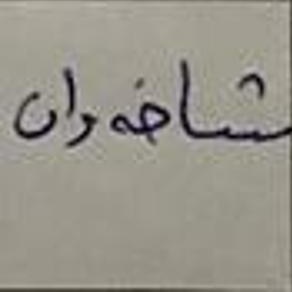 شاخه‌وان